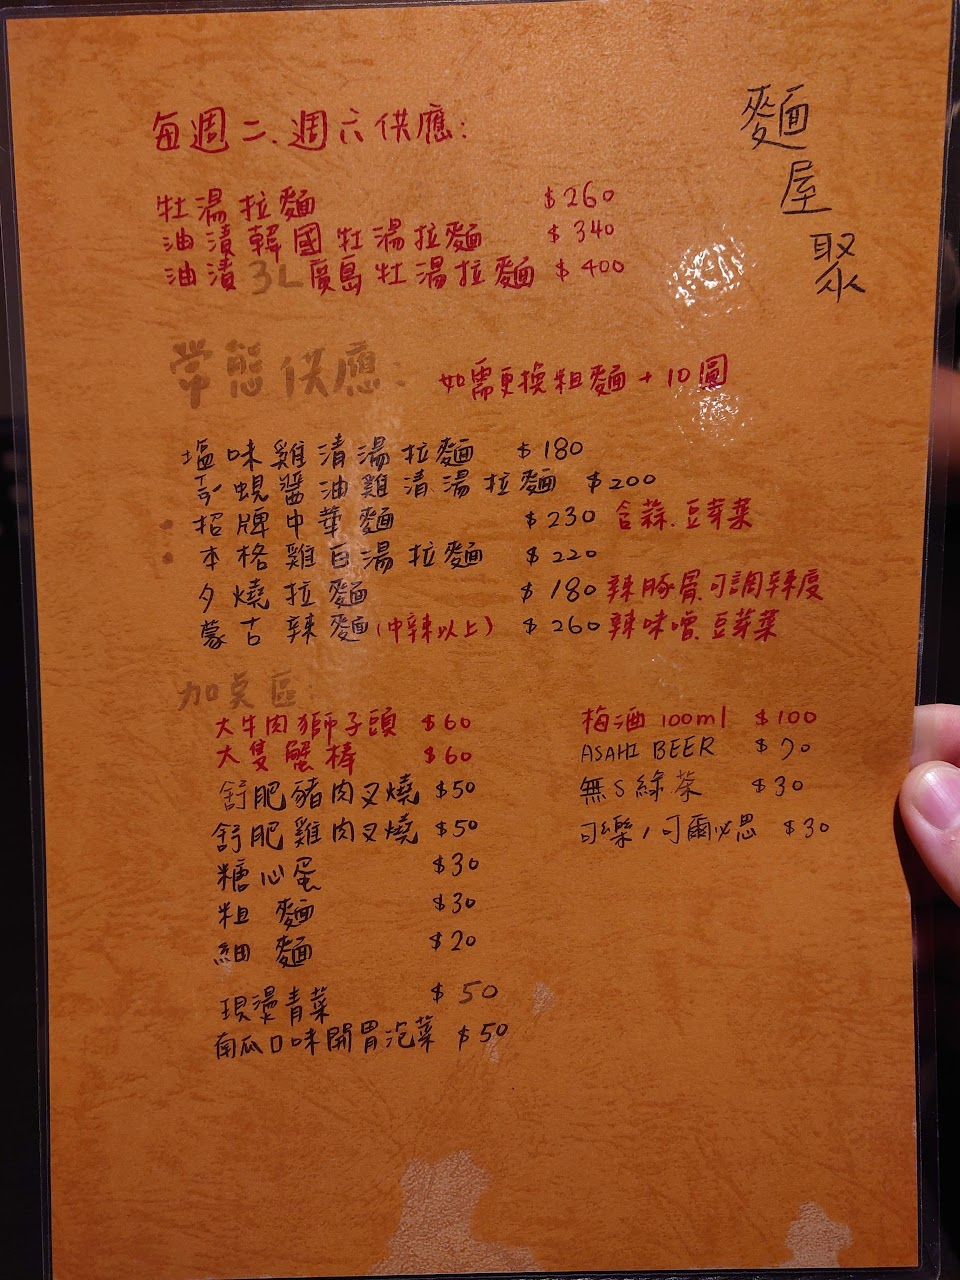 麵屋聚
每週二、週六供應:
牡湯拉麵 $260
油漬韓國牡湯拉麵 $340
油漬3L廣島牡湯拉麵 $400
常態供應:
如需更換粗麵+10圓
塩味雞清湯拉麵 $180
蜆醬油雞清湯拉麵 $200
招牌中華麵 $230 含蒜、豆芽菜
本格雞白湯拉麵 $220
夕燒拉麵 $180 辣豚骨,可調辣度
蒙古辣麵(中辣以上) $260 辣味噌,豆芽菜
加点區:
大牛肉獅子頭 $60
大隻蟹棒 $60
舒肥豬肉叉燒 $50
舒肥雞肉叉燒 $50
糖心蛋 $30
粗麵 $30
細麵 $20
現燙青菜 $50
南瓜口味開胃泡菜 $50
梅酒100ml $100
ASAHI BEER $70
無S綠茶 $30
可樂/可爾必思 $30